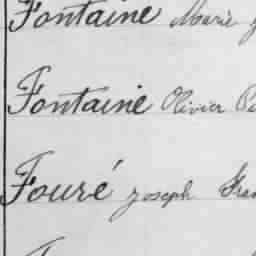 Fontaine Marie
Fontaine Olivier
Fouré Joseph